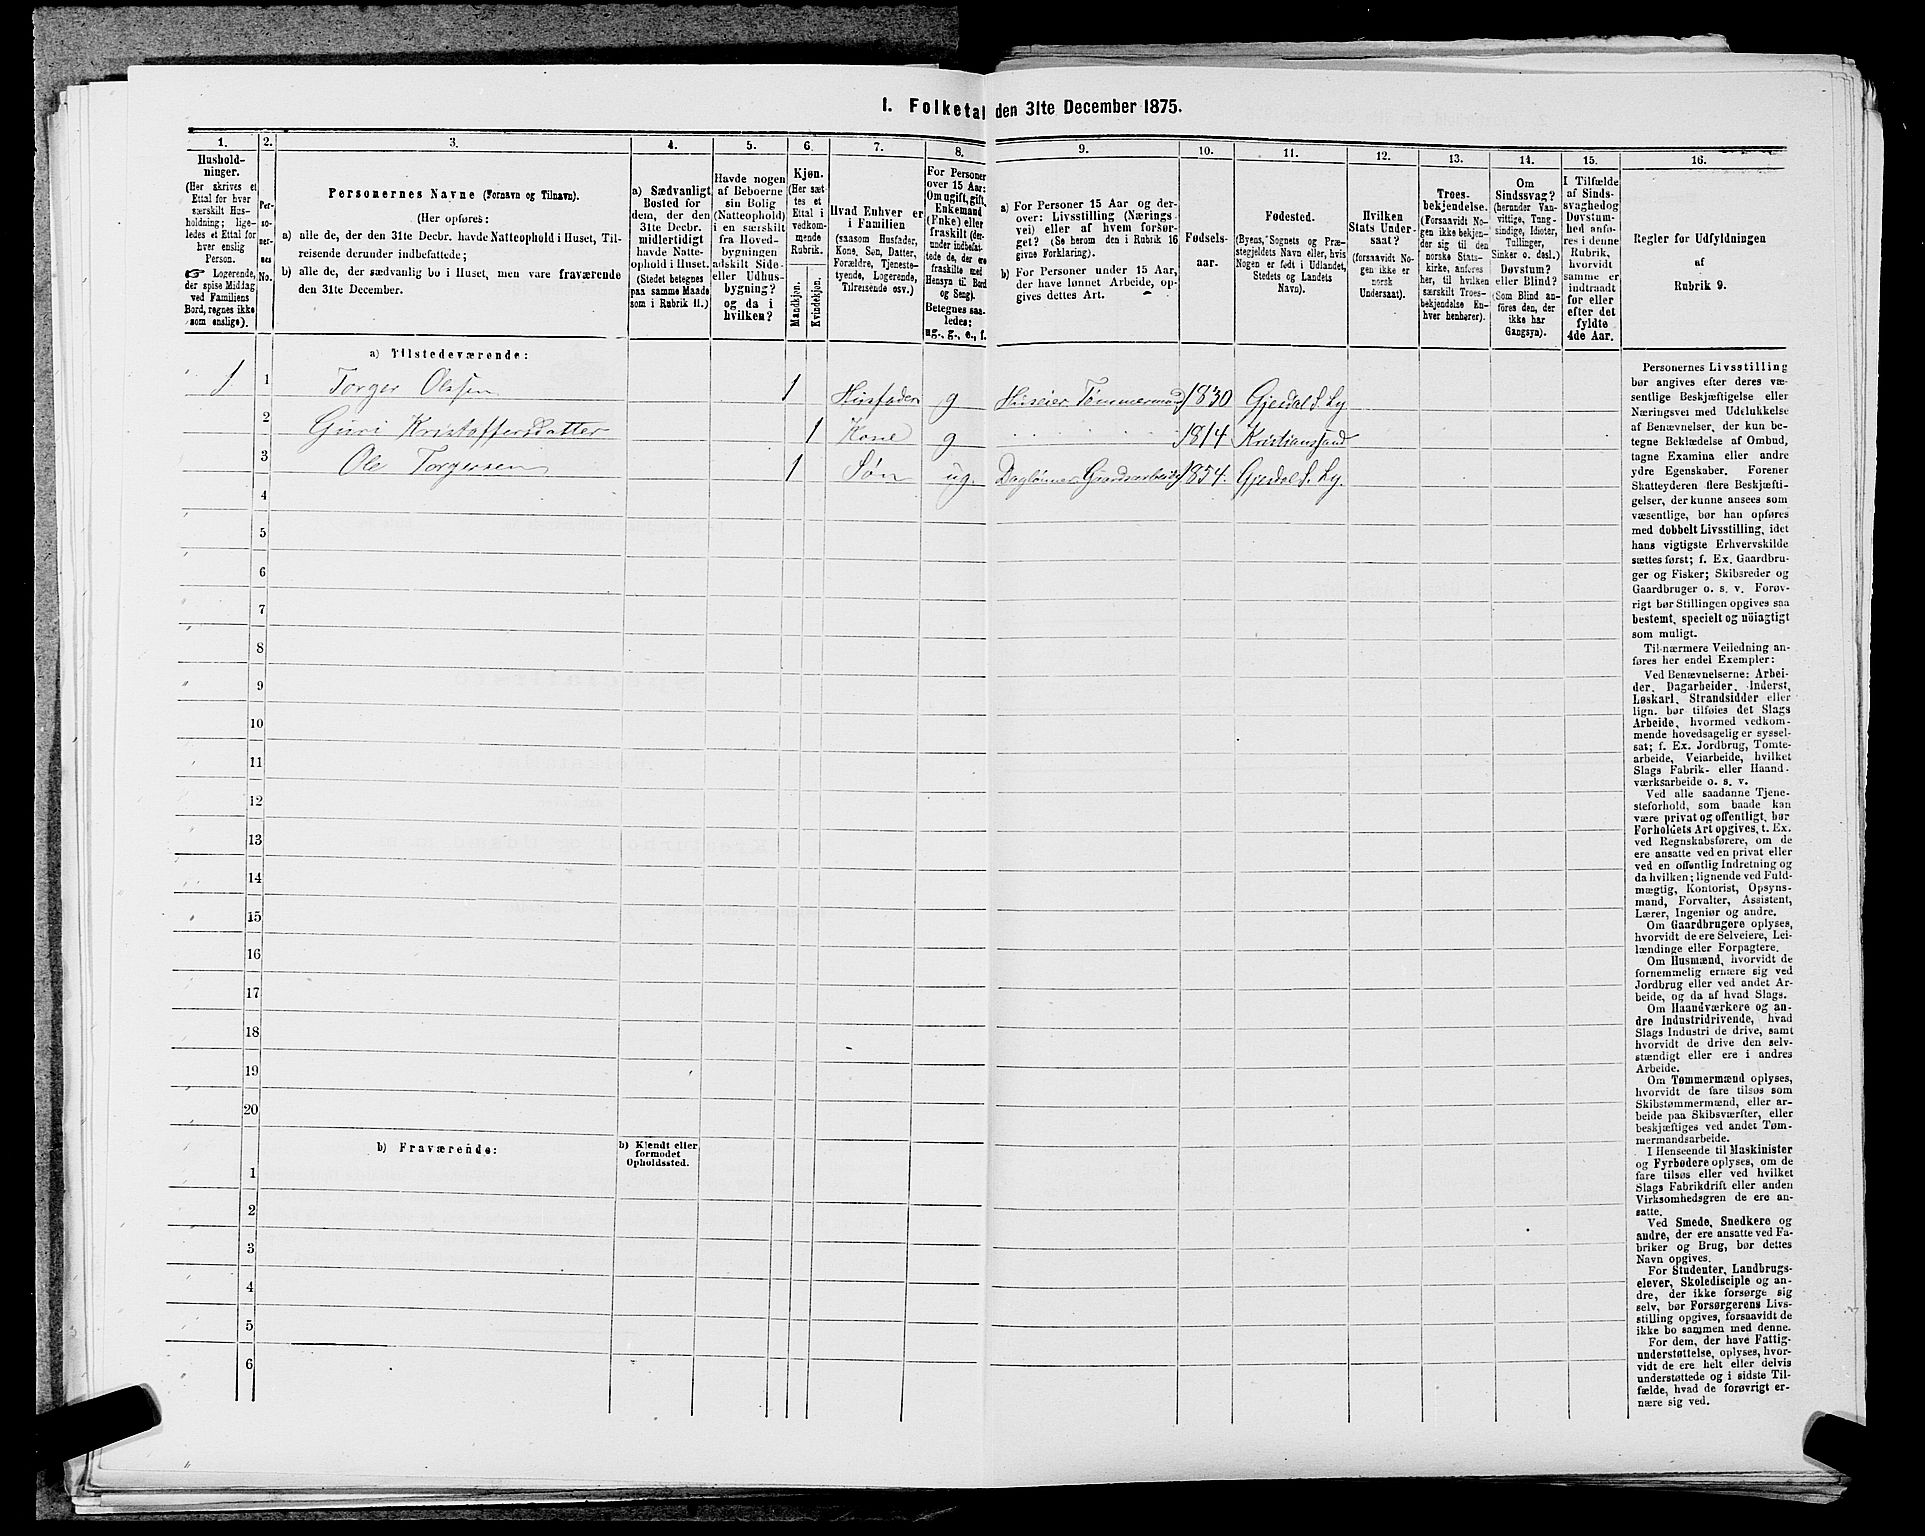 1. Folketal den 31te December 1875.
1.
Hushold-
ninger.
(Her skrives et
Ettal for hver
særskilt Hus-
holdning; lige-
ledes et Ettal for
hver enslig
Person.
☞ Logerende,
der spise Middag
ved Familiens
Bord, regnes ikke
som enslige).
2.
Per-
so-
ner-
nes
No.
3.
Personernes Navne (Fornavn og Tilnavn).
(Her opføres:
a) alle de, der den 31te Decbr. havde Natteophold i Huset, Til-
reisende derunder indbefattede;
b) alle de, der sædvanlig bo i Huset, men vare fraværende
den 31te December.
4.
a) Sædvanligt
Bosted for
dem, der den
31te Decbr.
midlertidigt
havde Natte-
ophold i Huset.
(Stedet betegnes
paa samme Maade
som i Rubrik 11.)
5.
Havde nogen
af Beboerne
sin Bolig
(Natteophold)
i en særskilt
fra Hoved-
bygningen
adskilt Side-
eller Udhus-
bygning?
og da i
hvilken?
6.
Kjøn.
(Her sæt-
tes et
Ettal i
vedkom-
mende
Rubrik.
Mandkjøn.
Kvindekjøn.
7.
Hvad Enhver er
i Familien
(saasom Husfader,
Kone, Søn, Datter,
Forældre, Tjeneste-
tyende, Logerende,
Tilreisende osv.)
8.
For Personer
over 15 Aar:
Om ugift, gift,
Enkemand
(Enke) eller
fraskilt (der-
under indbefat-
tede de, der ere
fraskilte med
Hensyn til Bord
og Seng).
Betegnes saa-
ledes:
ug., g., e., f.
9.
a) For Personer 15 Aar og der-
over: Livsstilling (Nærings-
vei) eller af hvem forsør-
get? (Se herom den i Rubrik 16
givne Forklaring).
b) For Personer under 15 Aar,
der have lønnet Arbeide, op-
gives dettes Art.
10.
Fødsels-
aar.
11.
Fødested.
(Byens, Sognets og Præ-
stegjeldets Navn eller, hvis
Nogen er født i Udlandet,
Stedets og Landets
Navn).
12.
Hvilken
Stats Under-
saat?
(forsaavidt No-
gen ikke er
norsk
Undersaat).
13.
Troes-
bekjendelse.
(Forsaavidt No-
gen ikke bekjen-
der sig til den
norske Stats-
kirke, anføres
her, til hvilken
særskilt Troes-
bekjendelse En-
hver henhører).
14.
Om
Sindssvag?
(herunder Van-
vittige, Tung-
sindige, Idioter,
Tullinger,
Sinker o. desl.)
Døvstum?
eller Blind?
(Som Blind an-
føres den, der
ikke har
Gangsyn).
15.
I Tilfælde
af Sinds-
svaghed og
Døvstum-
hed anfø-
res i denne
Rubrik,
hvorvidt
samme er
indtraadt
før eller
efter det
fyldte
4de Aar.
16.
Regler for Udfyldningen
af
Rubrik 9.
a) Tilstedeværende:
1 1 Torger Olsen 1 Husfader g Huseier Tømmermand 1830 Gjesdal S. Ly
2 Guri Kristoffersdatter 1 Kone g 1814 Kristianssand
3 Ole Torgersen 1 Søn ug. Daglønner Gaardsarbeide 1854. Gjesdal S. Ly.
4
5
6
7
8
9
10
11
12
13
14
15
16
17
18
19
20
b) Fraværende:
b) Kjendt eller
formodet
Opholdssted.
1
2
3
4
5
6
Personernes Livsstilling
bør angives efter deres væ-
sentlige Beskjæftigelse eller
Næringsvei med Udelukkelse
af Benævnelser, der kun be-
tegne Beklædelse af Ombud,
tagne Examina eller andre
ydre Egenskaber. Forener
Skatteyderen flere Beskjæfti-
gelser, der kunne ansees som
væsentlige, bør han opføres
med dobbelt Livsstilling, idet
hans vigtigste Erhvervskilde
sættes først; f. Ex. Gaardbru-
ger og Fisker; Skibsreder og
Gaardbruger o. s. v. Forøv-
rigt bør Stillingen opgives saa
bestemt, specielt og nøiagtigt
som muligt.
Til nærmere Veiledning an-
føres her endel Exempler:
Ved Benævnelserne: Arbei-
der, Dagarbeider, Inderst,
Løskarl, Strandsidder eller
lign. bør tilføies det Slags
Arbeide, hvormed vedkom-
mende hovedsagelig er syssel-
sat; f. Ex. Jordbrug, Tomte-
arbeide, Veiarbeide, hvilket
Slags Fabrik- eller Haand-
værksarbeide o. s. v.
Ved alle saadanne Tjene-
steforhold, som baade kan
være privat og offentligt, bør
Forholdets Art opgives, t. Ex.
ved Regnskabsførere, om de
ere ansatte ved en privat eller
ved en offentlig Indretning og
da hvilken; lignende ved Fuld-
mægtig, Kontorist, Opsyns-
mand, Forvalter, Assistent,
Lærer, Ingeniør og andre.
Om Gaardbrugere oplyses,
hvorvidt de ere Selveiere, Lei-
lændinge eller Forpagtere.
Om Husmænd, hvorvidt de
fornemmelig ernære sig ved
Jordbrug eller ved andet Ar-
beide, og da af hvad Slags.
Om Haandværkere og an-
dre Industridrivende, hvad
Slags Industri de drive, samt
hvorvidt de drive den selv-
stændigt eller ere i andres
Arbeide.
Om Tømmermænd oplyses,
hvorvidt de fare tilsøs som
Skibstømmermænd, eller ar-
beide paa Skibsværfter, eller
beskjæftiges ved andet Tøm-
mermandsarbeide.
I Henseende til Maskinister
og Fyrbødere oplyses, om de
fare tilsøs eller ved hvilket
Slags Fabrikdrift eller anden
Virksomhedsgren de ere an-
satte.
Ved Smede, Snedkere og
andre, der ere ansatte ved Fa-
briker og Brug, bør dettes
Navn opgives.
For Studenter, Landbrugs-
elever, Skoledisciple og an-
dre, der ikke forsørge sig
selv, bør Forsørgerens Livs-
stilling opgives, forsaavidt de
ikke bo sammen med denne.
For dem, der have Fattig-
understøttelse, oplyses, hvor-
vidt de ere helt eller delvis
understøttede og i sidste Til-
fælde, hvad de forøvrigt er-
nære sig ved.